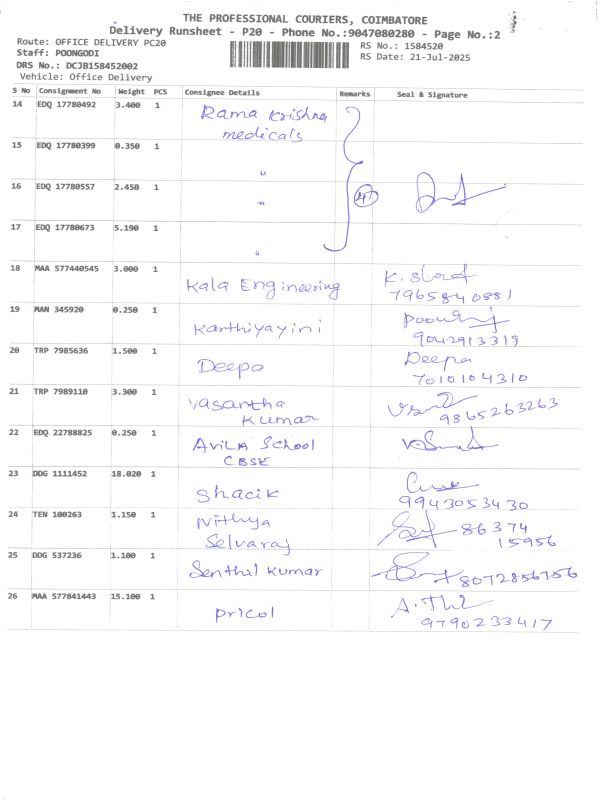 THE PROFESSIONAL COURIERS, COIMBATORE
Delivery Runsheet - P20 - Phone No.:9047080280 - Page No.:2
Route: OFFICE DELIVERY PC20
RS No.: 1584520
Staff: POONGODI
RS Date: 21-Jul-2025
DRS No.: DCJB158452002
Vehicle: Office Delivery
S No Consignment No Weight PCS Consignee Details Remarks Seal & Signature
14 EDQ 17780492 3.400 1 Rama Krishna
medicals
15 EDQ 17780399 0.350 1
"
16 EDQ 17780557 2.450 1
" 4
17 EDQ 17780673 5.190 1
"
18 MAA 577440545 3.000 1 Kala Engineering
7965840881
19 MAN 345920 0.250 1 Karthiyayini
9042913319
20 TRP 7985636 1.500 1 Deepa Deepa
7010104310
21 TRP 7989110 3.300 1 Vasantha
Kumar 9865263263
22 EDQ 22788825 0.250 1 AVILA School
CBSE
23 DDG 1111452 18.020 1 Shacik
9943053430
24 TEN 100263 1.150 1 Nithya 86374
Selvaraj 15956
25 DDG 537236 1.100 1 Senthil Kumar 8072856756
26 MAA 577841443 15.100 1 Pricol
9790233417